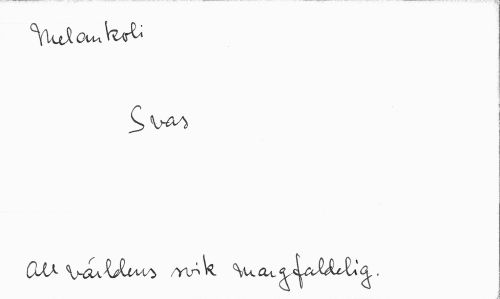 Melankoli
Svas
All världens svik mangfaldelig.